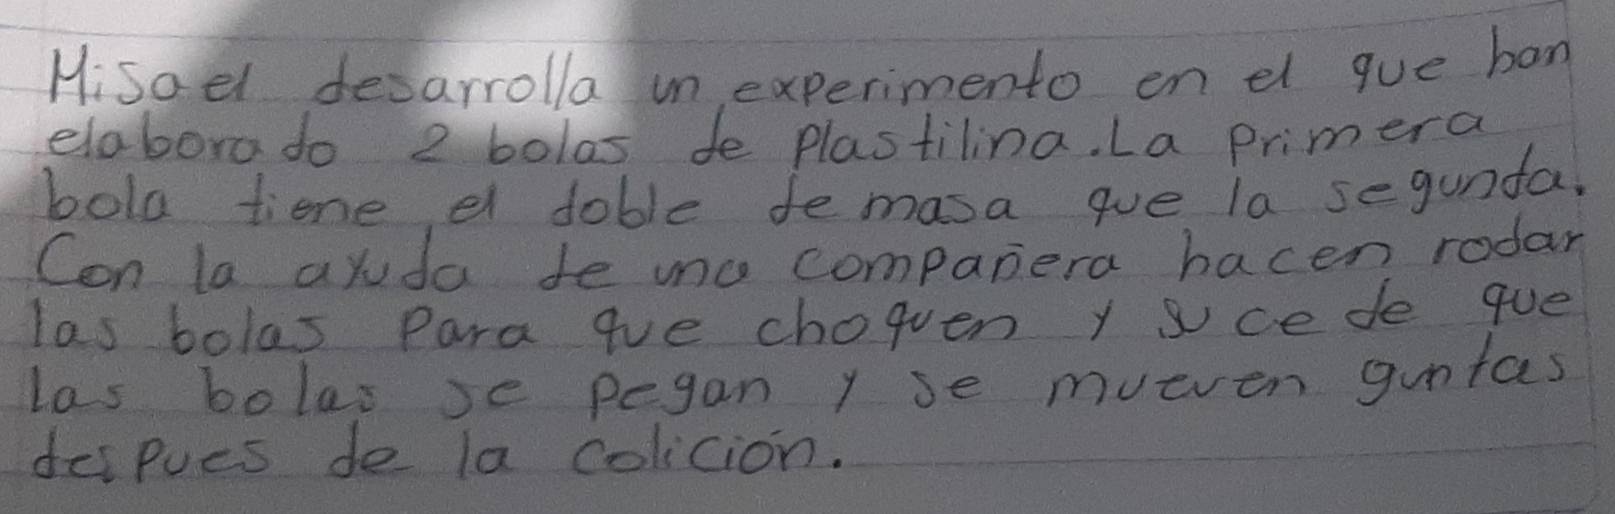 Misael desarrolla un experimento en el que han
elaborado 2 bolas de plastilina. La primera
bola tiene el doble de masa que la segunda.
Con la ayuda de una compañera hacen rodar
las bolas para que choquen y sucede que
las bolas se pegan y se mueven guntas
despues de la colición.